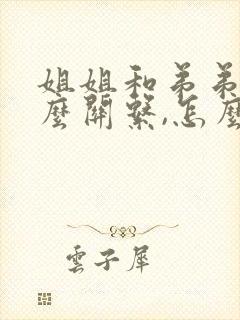 姐姐和弟弟
麼關系,怎麼
雲子犀